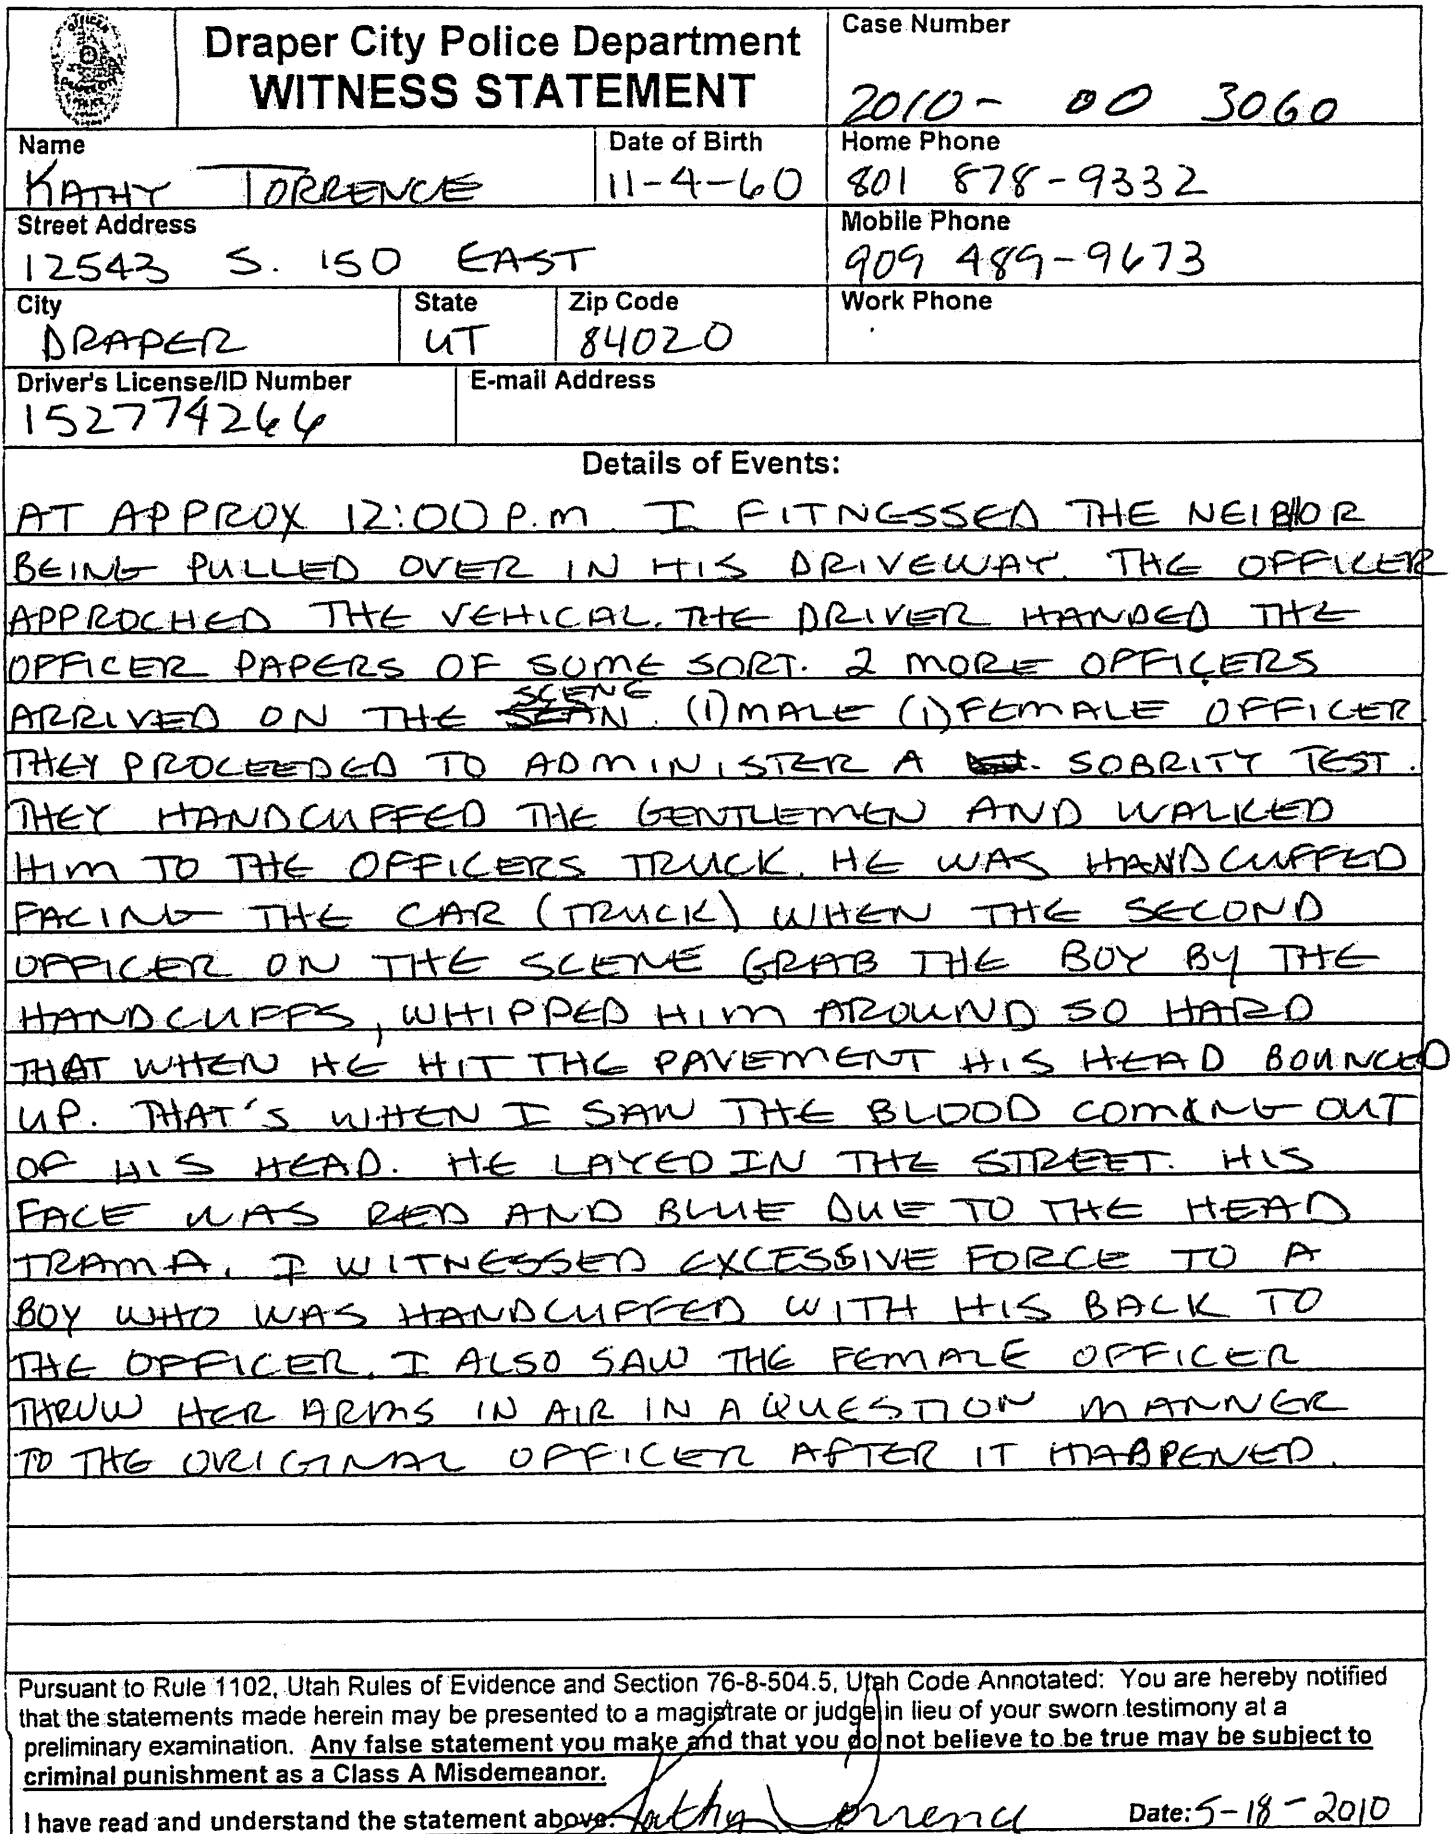 Draper City Police Department
WITNESS STATEMENT
Case Number
2010- 00 3060
Name
KATHY TORRENCE
Date of Birth
11-4-60
Home Phone
801 878-9332
Street Address
12543 S. 150 EAST
Mobile Phone
909 489-9673
City
DRAPER
State
UT
Zip Code
84020
Work Phone
Driver's License/ID Number
152774266
E-mail Address
Details of Events:
AT APPROX 12:00 P.m. I FITNESSED THE NEIBHOR
BEING PULLED OVER IN HIS DRIVEWAY. THE OFFICER
APPROCHED THE VEHICAL. THE DRIVER HANDED THE
OFFICER PAPERS OF SOME SORT. 2 MORE OFFICERS
ARRIVED ON THE SCENE. (1) MALE (1) FEMALE OFFICER.
THEY PROCEEDED TO ADMINISTER A SOBRITY TEST.
THEY HANDCUFFED THE GENTLEMEN AND WALKED
HIM TO THE OFFICERS TRUCK. HE WAS HANDCUFFED
FACING THE CAR (TRUCK) WHEN THE SECOND
OFFICER ON THE SCENE GRAB THE BOY BY THE
HANDCUFFS, WHIPPED HIM AROUND SO HARD
THAT WHEN HE HIT THE PAVEMENT HIS HEAD BOUNCED
UP. THAT'S WHEN I SAW THE BLOOD COMING OUT
OF HIS HEAD. HE LAYED IN THE STREET. HIS
FACE WAS RED AND BLUE DUE TO THE HEAD
TRAMA. I WITNESSED EXCESSIVE FORCE TO A
BOY WHO WAS HANDCUFFED WITH HIS BACK TO
THE OFFICER. I ALSO SAW THE FEMALE OFFICER
THRUW HER ARMS IN AIR IN A QUESTION MANNER
TO THE ORIGINAL OFFICER AFTER IT HAPPENED.
Pursuant to Rule 1102, Utah Rules of Evidence and Section 76-8-504.5, Utah Code Annotated: You are hereby notified
that the statements made herein may be presented to a magistrate or judge in lieu of your sworn testimony at a
preliminary examination. Any false statement you make and that you do not believe to be true may be subject to
criminal punishment as a Class A Misdemeanor.
I have read and understand the statement above. Kathy Torrence Date: 5-18-2010